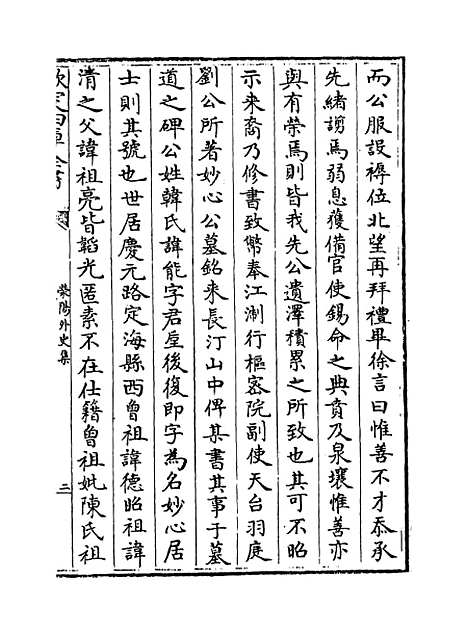 而公服設褥位北望再拜禮畢徐言曰惟善不才忝承
先緒謭焉弱息獲備官使錫命之典賁及泉壤惟善亦
與有榮焉則皆我先公遺澤積累之所致也其可不昭
示来裔乃修書致幣奉江淛行樞密院副使天台羽庭
劉公所著妙心公墓銘来長汀山中俾某書其事于墓
道之碑公姓韓氏諱能字君垕後復即字為名妙心居
士則其號也世居慶元路定海縣西曾祖諱德昭祖諱
清之父諱祖亮皆韜光匿素不在仕籍曾祖妣陳氏祖
欽定四庫全書
滎陽外史集
三